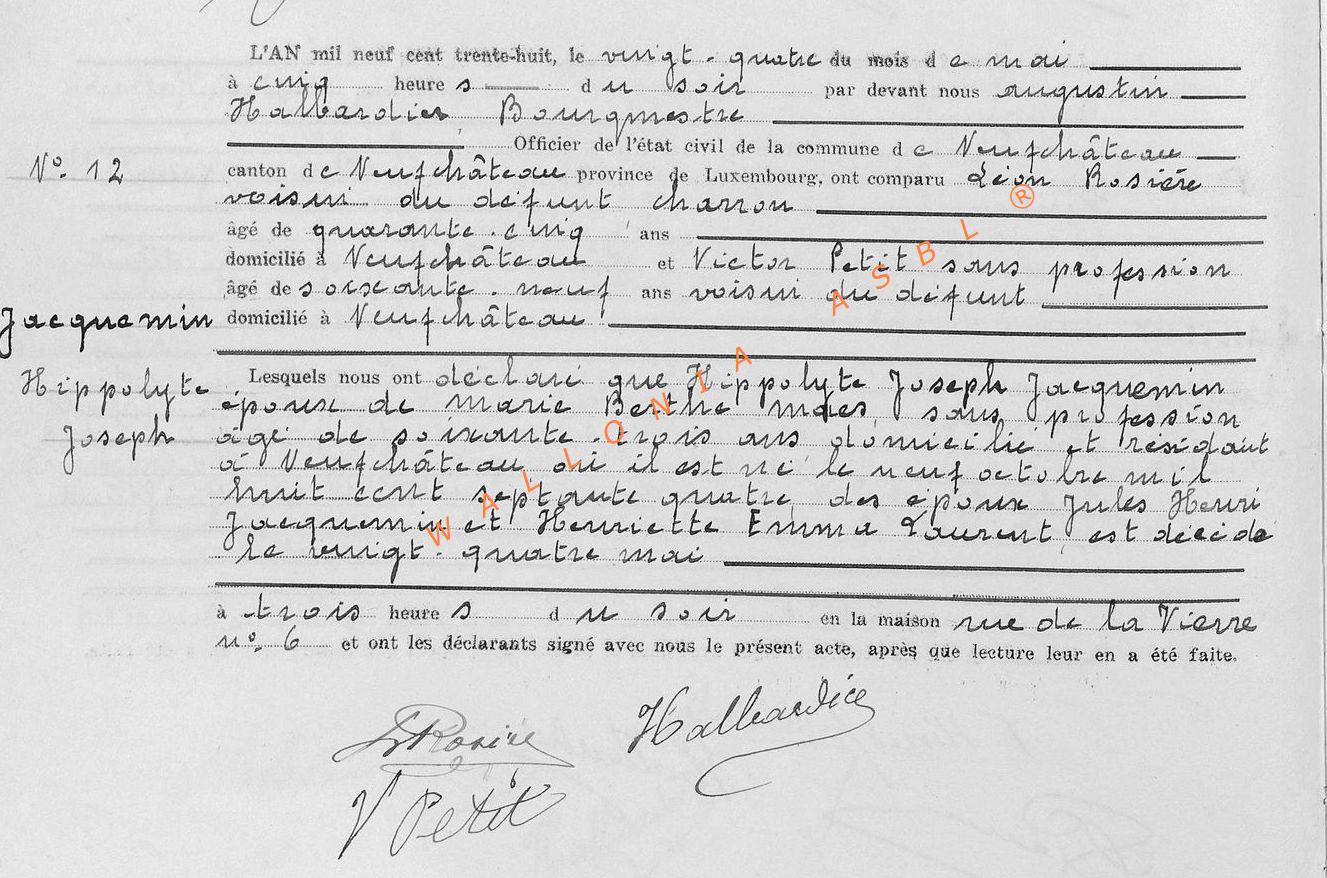 L'AN mil neuf cent trente-huit, le vingt-quatre du mois de mai
à cinq heures du soir par devant nous augustin
Halbardier Bourgmestre
Officier de l'état civil de la commune de Neufchâteau
N° 12
canton de Neufchâteau province de Luxembourg, ont comparu Léon Rosière
voisin du défunt charron
âgé de quarante-cinq ans
domicilié à Neufchâteau et Victor Petit sans profession
âgé de soixante-neuf ans voisin du défunt
Jacquemin
domicilié à Neufchâteau
Hippolyte
Joseph
Lesquels nous ont déclaré que Hippolyte Joseph Jacquemin
époux de marie Berthe maes, sans profession
âgé de soixante-trois ans domicilié et résidant
à Neufchâteau où il est né le neuf octobre mil
huit cent septante quatre, des époux Jules Henri
Jacquemin et Henriette Emma Laurent, est décédé
le vingt-quatre mai
à trois heures du soir en la maison rue de la Vierre
n° 6 et ont les déclarants signé avec nous le présent acte, après que lecture leur en a été faite.
LRosière
Halbardier
V Petit
WALLONIA ASBL ®